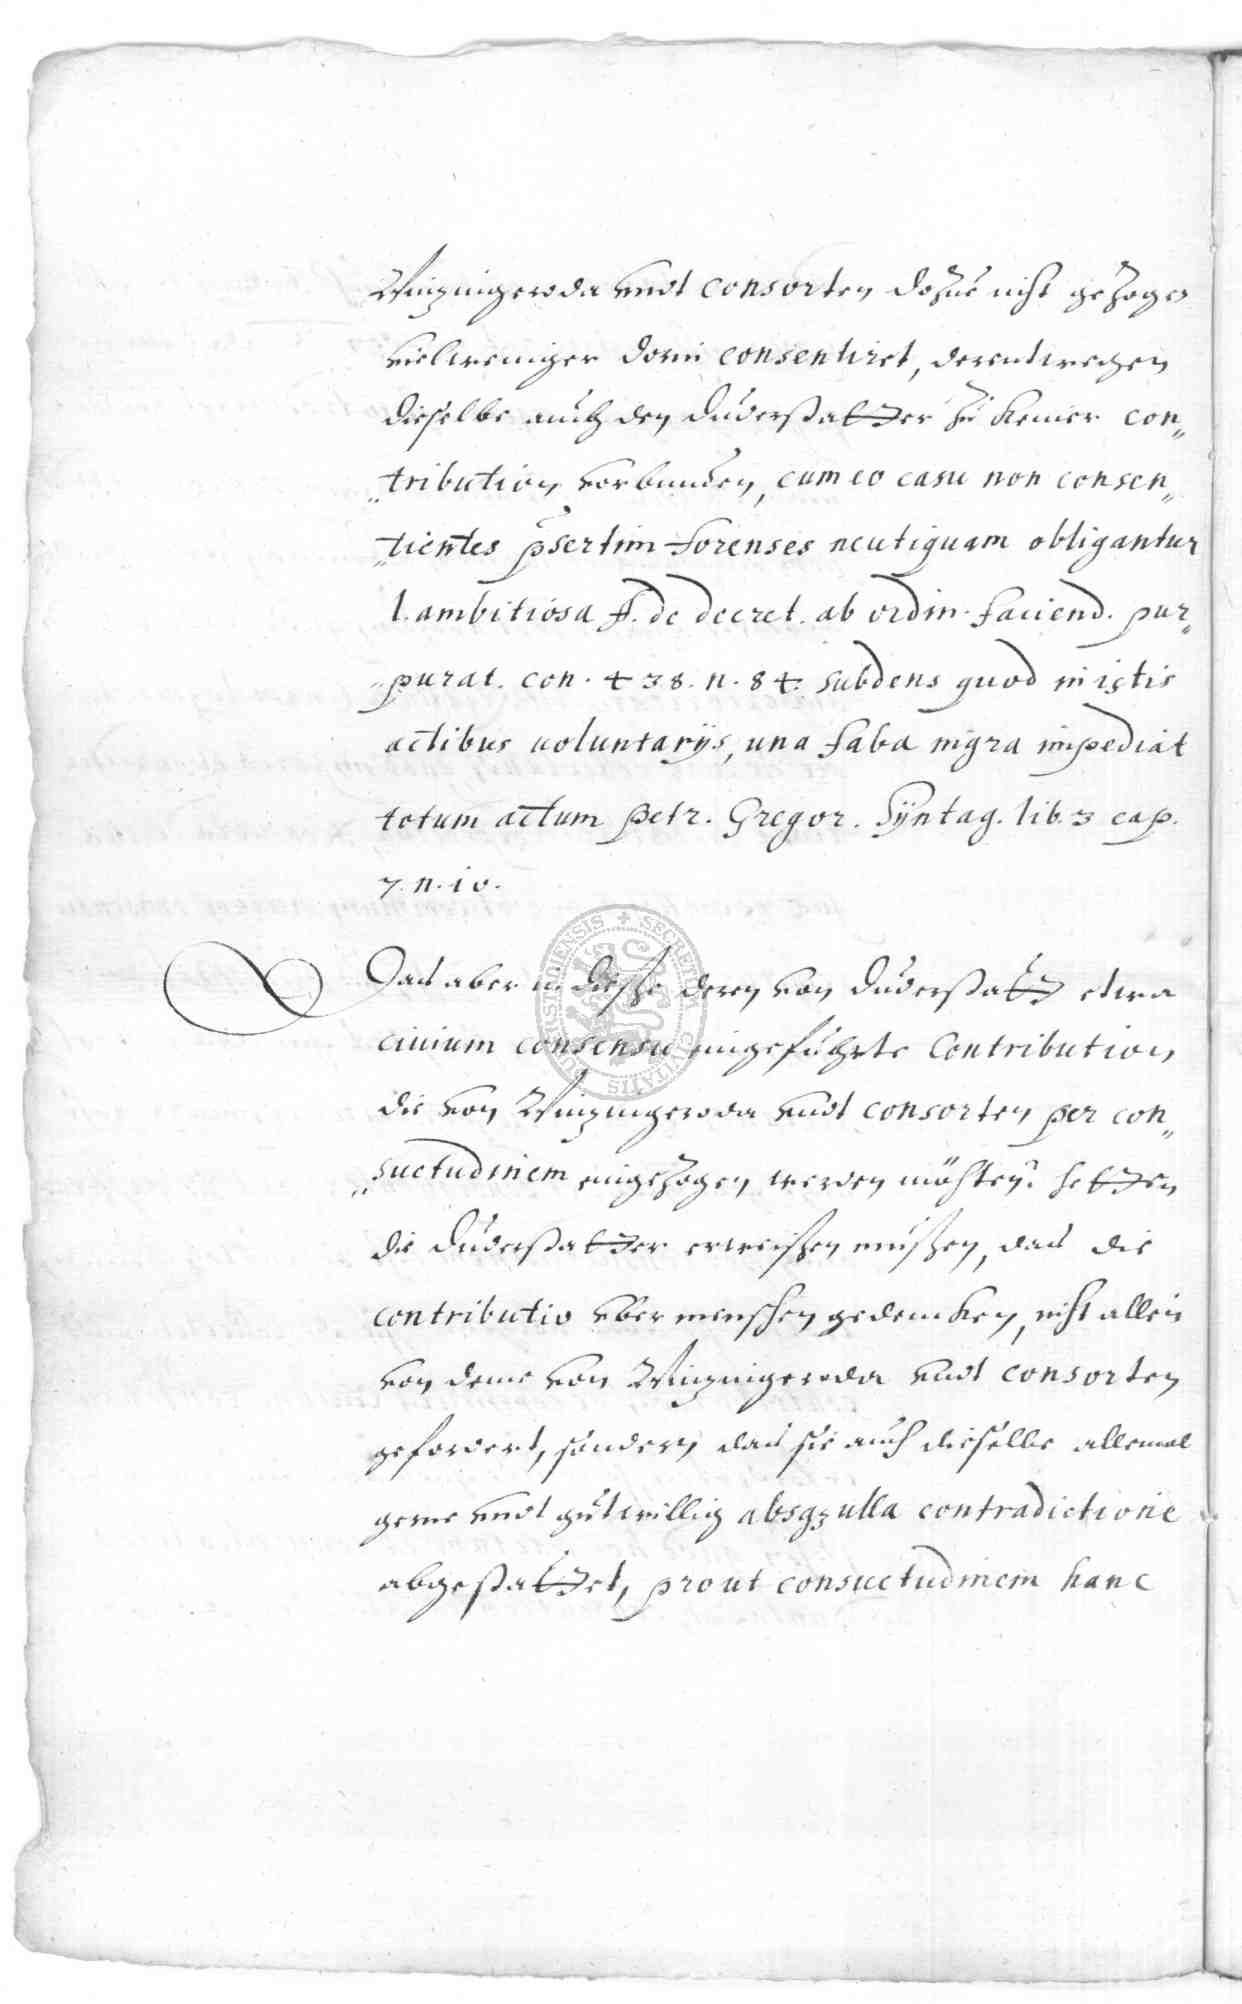 Winzingeroda vndt consorten dozue nicht gezogen
vielweniger dorin consentiret, derentwegen
dieselbe auch den Duderstatter zu keiner con„
„tribution verbunden, cum eo casu non consen„
„tientes p̃sertim forenses neutiquam obligantur
l. ambitiosa ff. de decret. ab ordin. faciend. pur„
„purat. con. 438. n. 84. subdens quod in istis
actibus voluntarijs, una faba nigra impediat
totum actum Petr. Gregor. Syntag. lib. 3 cap.
7. n. 10.
Das aber in diesse deren von Duderstatt etwa
civium consensu eingefuhrte Contribution
die von Winzingeroda vndt consorten per con„
„suetudinem eingezogen werden möchten: hetten
die Duderstatter erweissen müssen, das die
contributio vber menschen gedencken, nicht allein
von deme von Winzingeroda vndt consorten
gefordert, sondern das sie auch dieselbe allemal
gerne vndt gutwillig absqz ulla contradictione
abgestattet, prout consuetudinem hanc
SECRETUM CIVITATIS DUDERSTADIENSIS